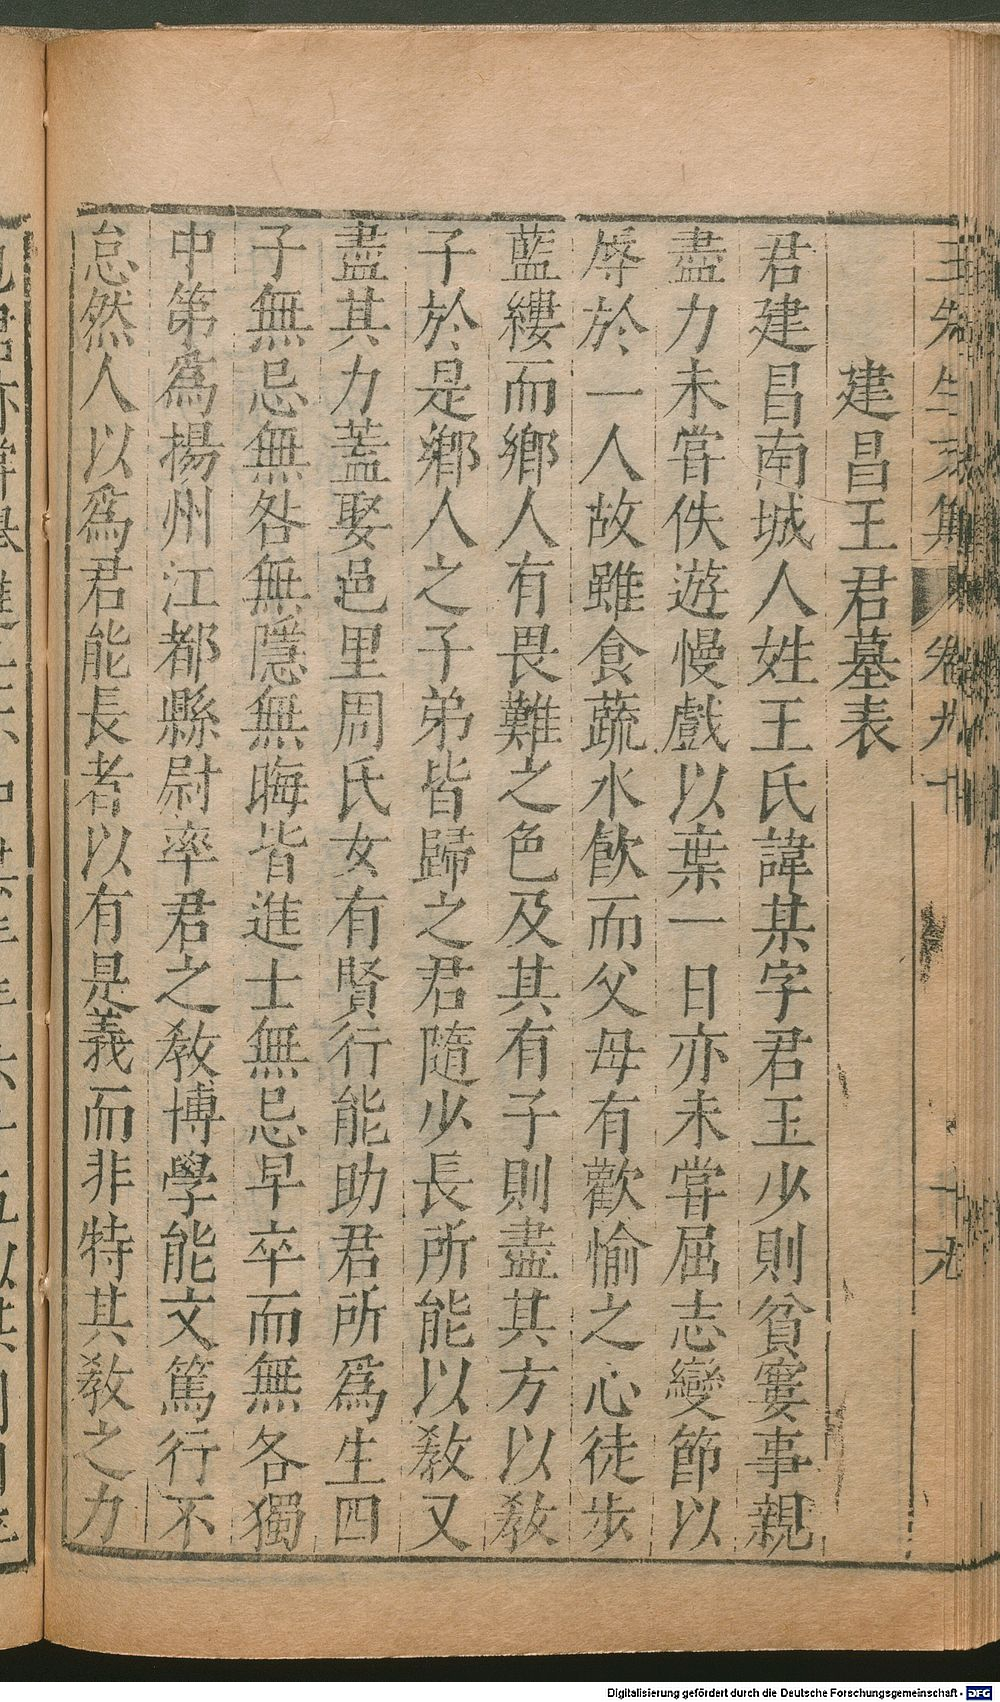 王先生文集 卷九十 十九
建昌王君墓表
君建昌南城人姓王氏諱某字君玉少則貧窶事親
盡力未甞佚遊慢戲以葉一日亦未甞屈志變節以
辱於一人故雖食蔬水飮而父母有歡愉之心徒步
藍縷而鄉人有畏難之色及其有子則盡其方以敎
子於是鄉人之子弟皆歸之君隨少長所能以敎又
盡其力蓋娶邑里周氏女有賢行能助君所爲生四
子無忌無咎無隱無晦皆進士無忌早卒而無咎獨
中第爲揚州江都縣尉率君之敎博學能文篤行不
怠然人以爲君能長者以有是義而非特其敎之力
Digitalisierung gefördert durch die Deutsche Forschungsgemeinschaft - DFG